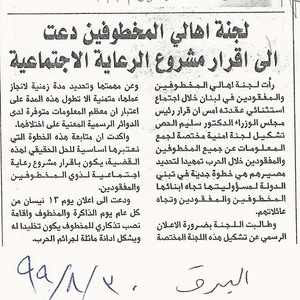 لجنة اهالي المخطوفين دعت
الى اقرار مشروع الرعاية الاجتماعية
رأت لجنة اهالي المخطوفين
والمفقودين في لبنان خلال اجتماع
استثنائي عقدته امس ان قرار رئيس
مجلس الوزراء الدكتور سليم الحص
تشكيل لجنة امنية مختصة لجمع
المعلومات عن جميع المخطوفين
والمفقودين خلال الحرب تمهيدا لتحديد
مصيرهم هي خطوة جدية في تبني
الدولة لمسؤوليتها تجاه ابنائها
المخطوفين والمفقودين وتجاه
عائلاتهم.
وطالبت اللجنة بضرورة الاعلان
الرسمي عن تشكيل هذه اللجنة المختصة
وعن مهمتها وتحديد مدة زمنية لانجاز
عملها، متمنية الا تطول هذه المدة على
اعتبار ان معظم المعلومات متوفرة لدى
الدوائر الرسمية المعنية على اختلافها.
واكدت ان متابعة هذه الخطوة التي
نعتبرها اساسية للحل الحقيقي لهذه
القضية، يكون باقرار مشروع رعاية
اجتماعية لذوي المخطوفين
والمفقودين.
ودعت الى اعلان يوم ١٣ نيسان من
كل عام يوم الذاكرة والمخطوف واقامة
نصب تذكاري للمخطوف يكون تخليدا له
ويشكل ادانة ماثلة لجرائم الحرب.
البرق ٩٩/٨/٣٠